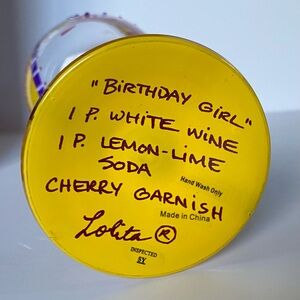 "BIRTHDAY GIRL"
1 P. WHITE WINE
1 P. LEMON-LIME
SODA
Hand Wash Only
CHERRY GARNISH
Made in China
Lolita ®
INSPECTED